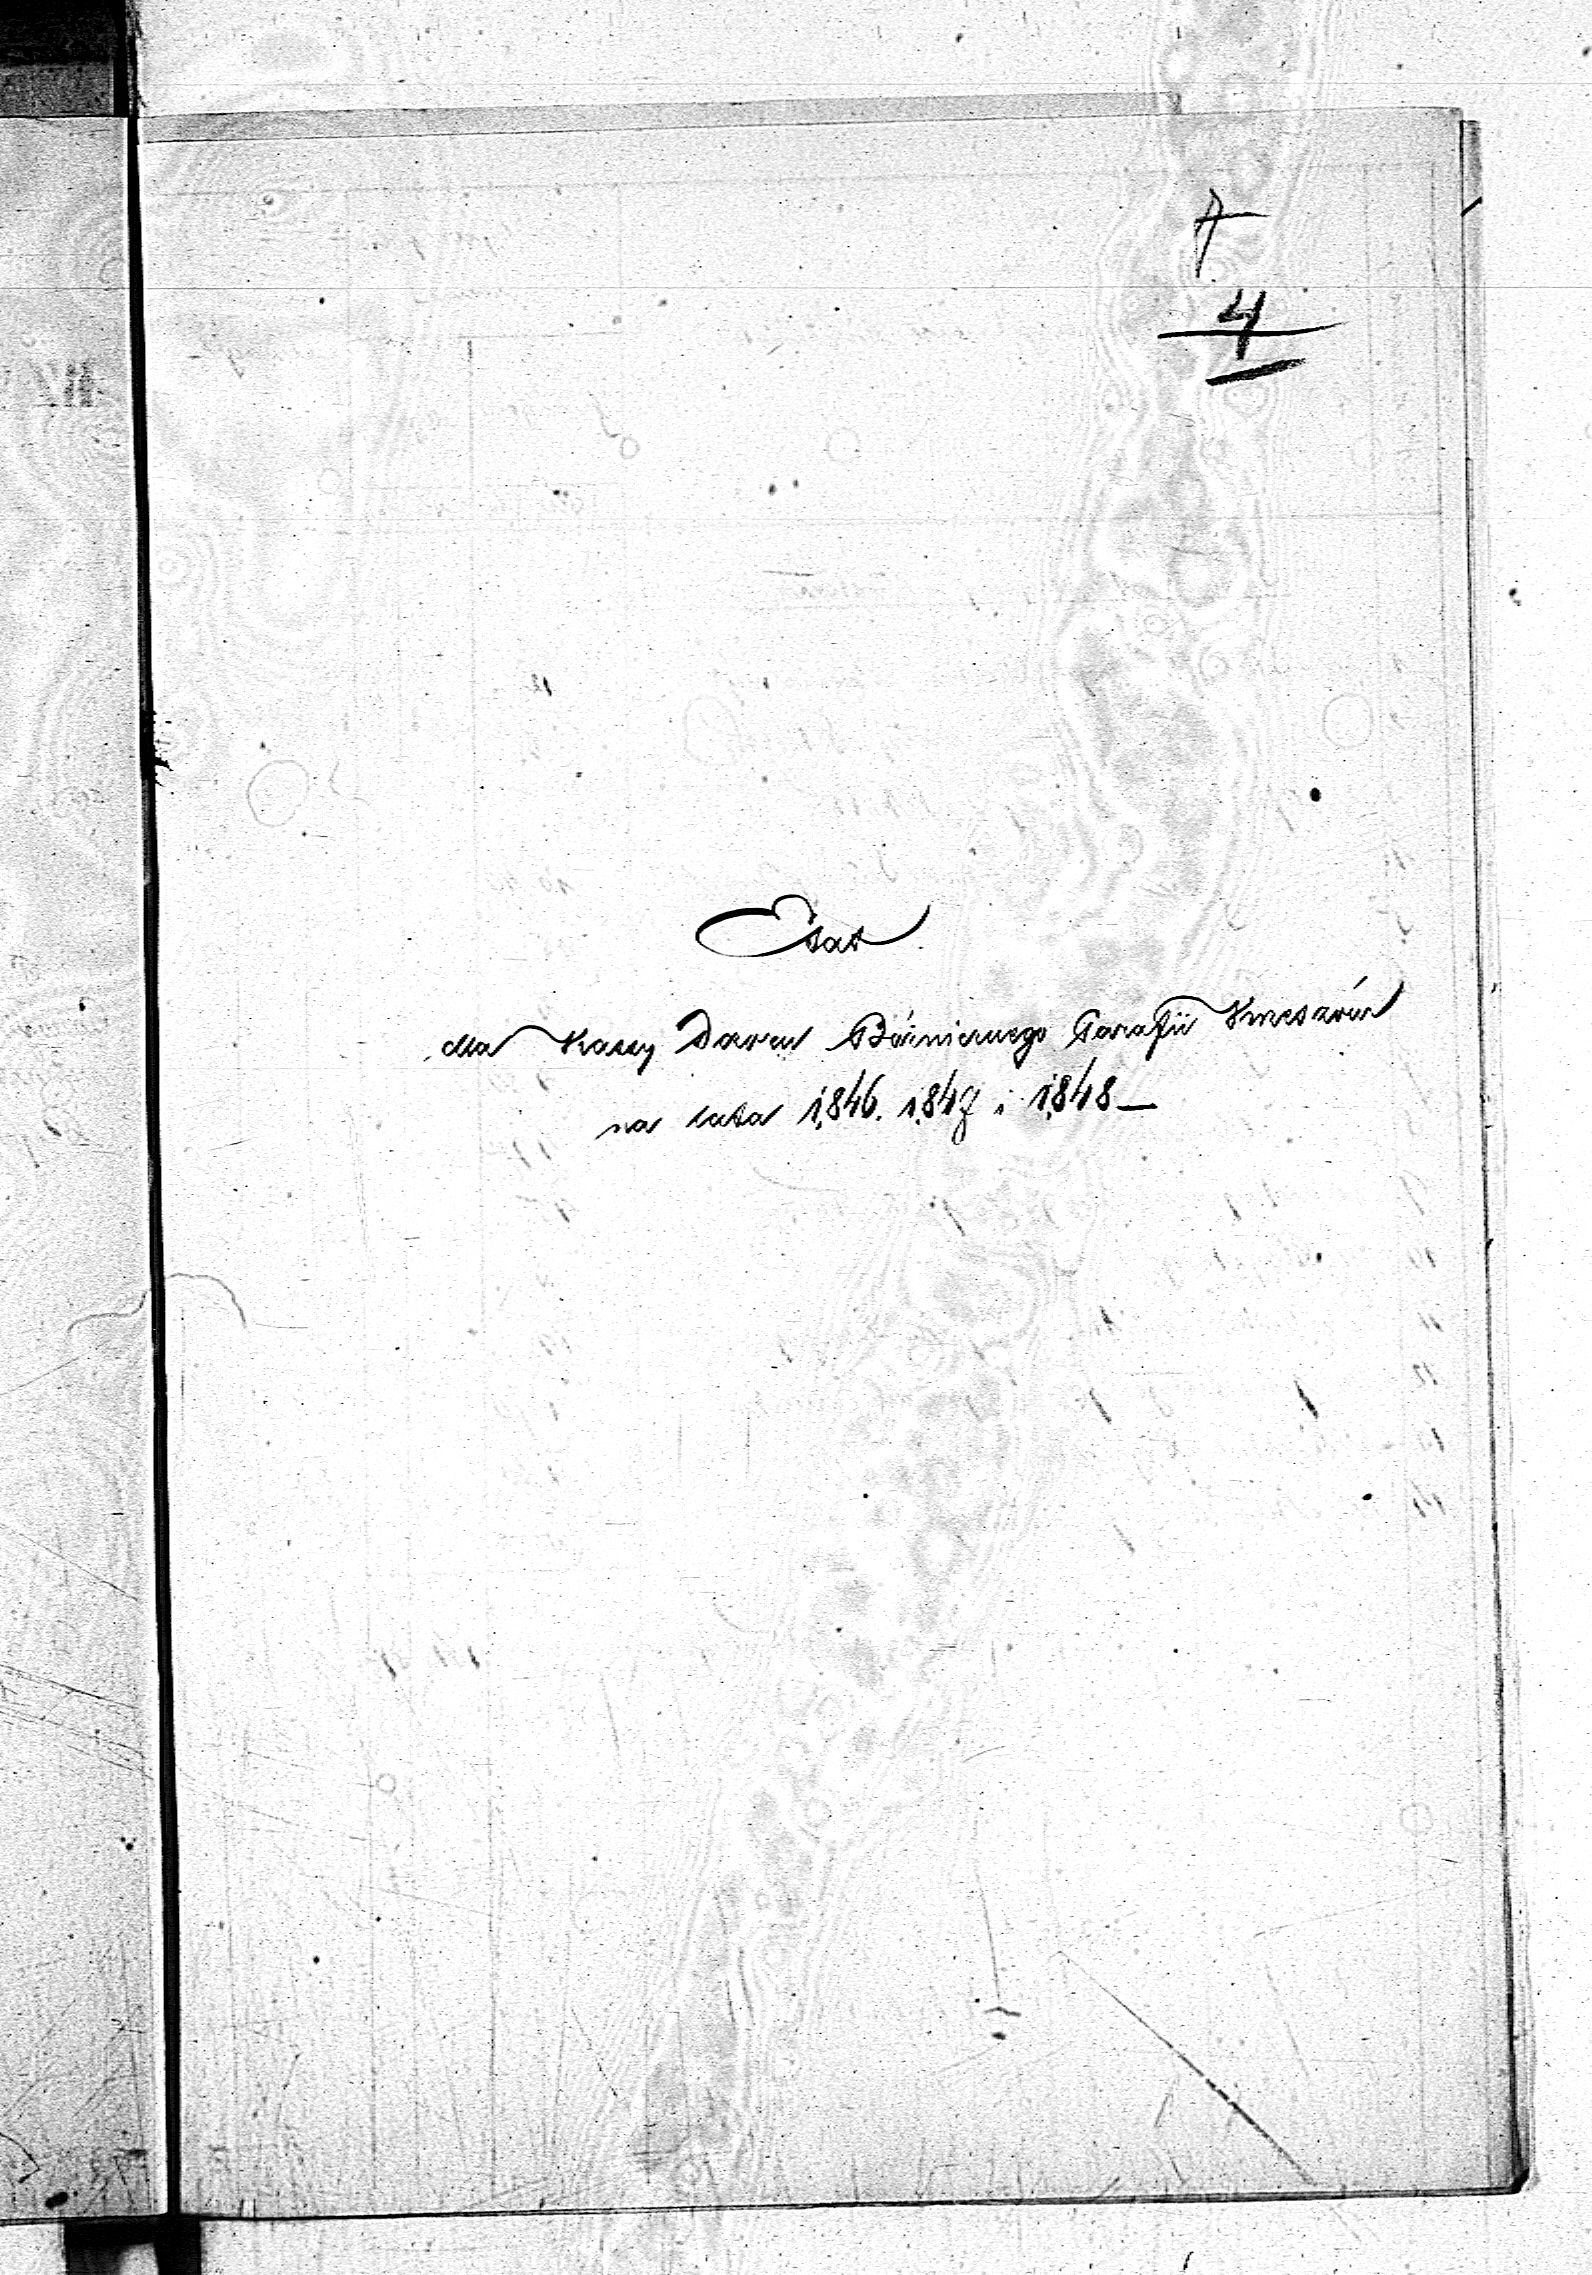 4
Etat
dla Kassy Dozoru Bóżnicznego Parafii Krzeszów
na lata 1846. 1847 i 1848 —